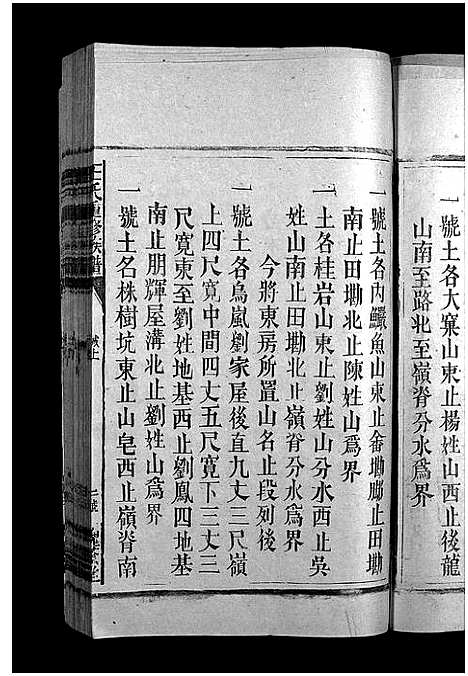 一號土各大窠山東止楊姓山西止後龍
山南至路北至嶺脊分水為界
一號土各內鱸魚山東止畲墈廊止田墈
南止田墈北止陳姓山為界
一土各桂岩山東止劉姓山分水西止吳
姓山南止田墈北止嶺脊分水為界
今將東房所置山名止段列後
一號土各烏嵐劉家屋後直九丈三尺嶺
上四尺寬中間四丈五尺寬下三丈三
尺寬東至劉姓地基西止劉鳳四地基
南止朋輝屋溝北止劉姓山為界
一號土名株樹坑東止山皂西止嶺脊南
氏重修族譜